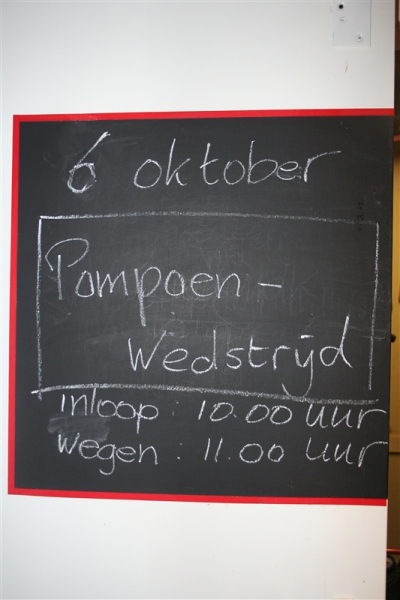 6 oktober
Pompoen-
Wedstrijd
inloop : 10.00 uur
wegen : 11.00 uur